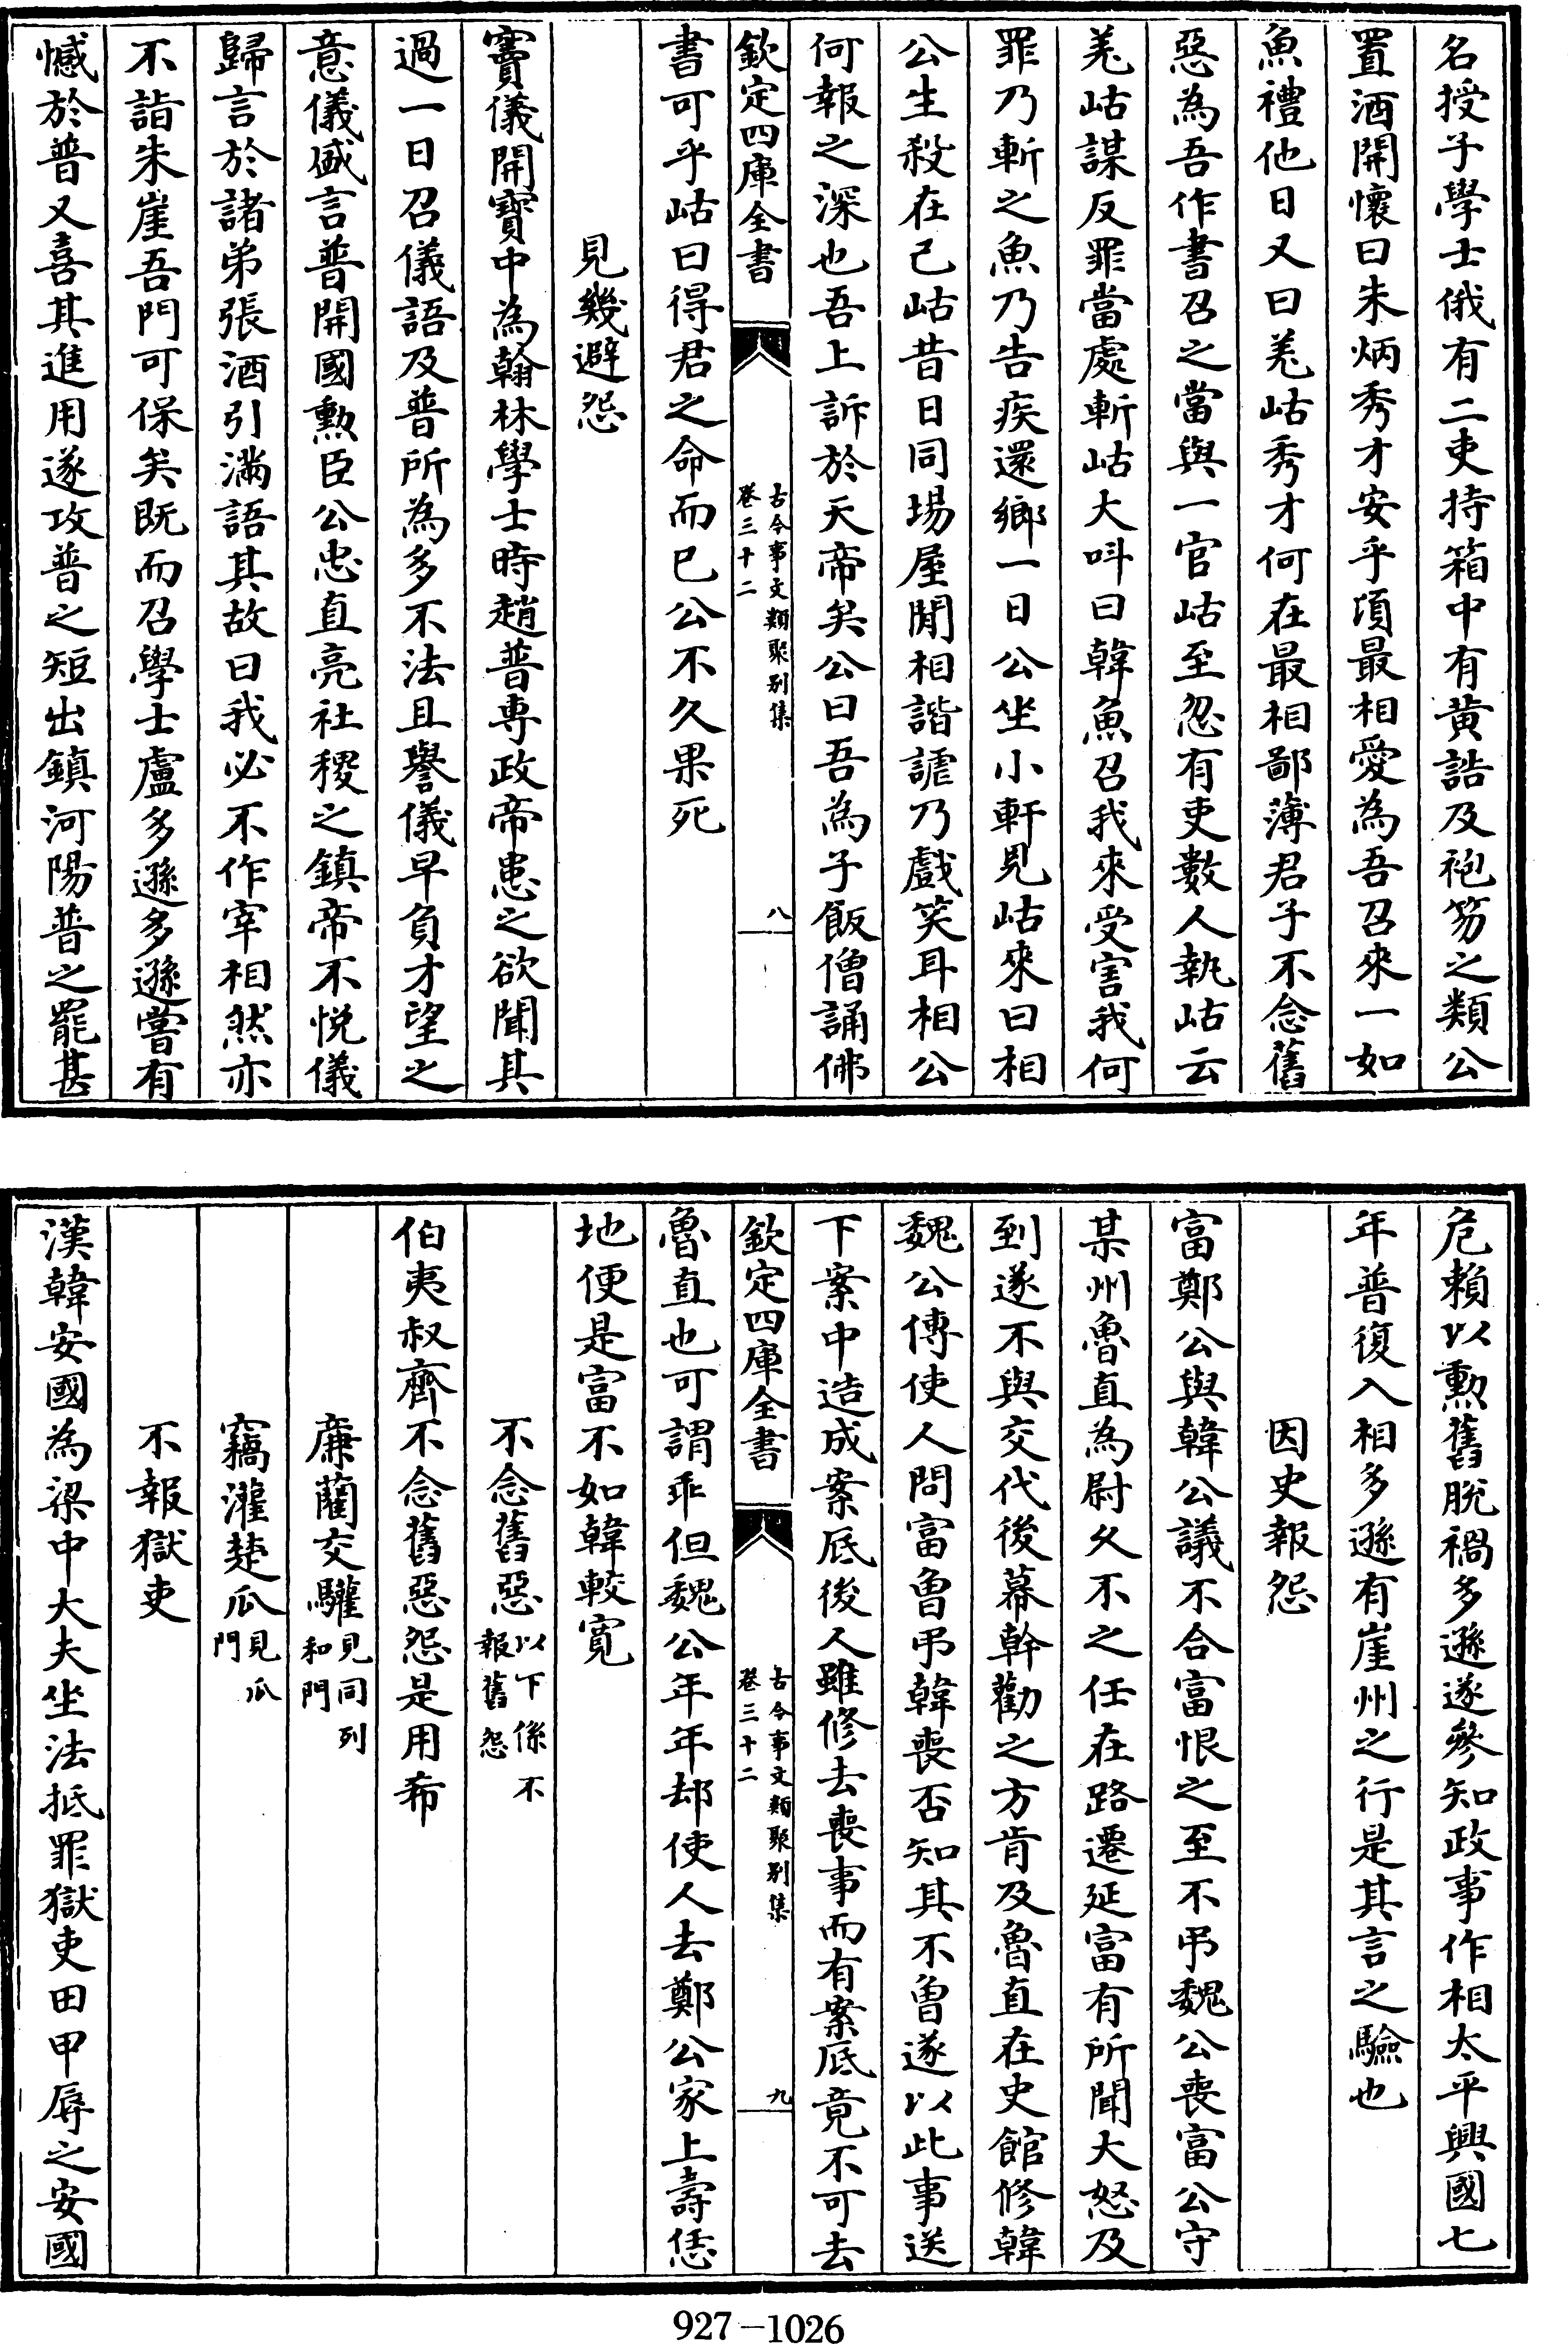 名授子學士俄有二吏持箱中有黄誥及袍笏之類公
置酒開懷曰朱炳秀才安乎頃最相愛為吾召來一如
魚禮他日又曰羌岵秀才何在最相鄙薄君子不念舊
惡為吾作書召之當與一官岵至忽有吏數人執岵云
羌岵謀反罪當處斬岵大呌曰韓魚召我來受害我何
罪乃斬之魚乃告疾還鄉一日公坐小軒見岵來曰相
公生殺在己岵昔日同場屋閒相諧謔乃戲笑耳相公
何報之深也吾上訴於天帝矣公曰吾為子飯僧誦佛
欽定四庫全書
古今事文類聚别集
卷三十二
八
書可乎岵曰得君之命而已公不久果死
見幾避怨
竇儀開寶中為翰林學士時趙普專政帝患之欲聞其
過一日召儀語及普所為多不法且譽儀早負才望之
意儀盛言普開國勲臣公忠直亮社稷之鎮帝不悦儀
歸言於諸弟張酒引滿語其故曰我必不作宰相然亦
不詣朱崖吾門可保矣既而召學士盧多遜多遜嘗有
憾於普又喜其進用遂攻普之短出鎮河陽普之罷甚
危賴以勲舊脱禍多遜遂參知政事作相太平興國七
年普復入相多遜有崖州之行是其言之驗也
因史報怨
富鄭公與韓公議不合富恨之至不弔魏公喪富公守
某州魯直為尉久不之任在路遷延富有所聞大怒及
到遂不與交代後幕幹勸之方肯及魯直在史館修韓
魏公傳使人問富曾弔韓喪否知其不曾遂以此事送
下案中造成案底後人雖修去喪事而有案底竟不可去
欽定四庫全書
古今事文類聚别集
卷三十二
九
魯直也可謂乖但魏公年年却使人去鄭公家上壽恁
地便是富不如韓較寛
不念舊惡以下係不報舊怨
伯夷叔齊不念舊惡怨是用希
廉藺交驩見同列和門
竊灌楚瓜見瓜門
不報獄吏
漢韓安國為梁中大夫坐法抵罪獄吏田甲辱之安國
927-1026